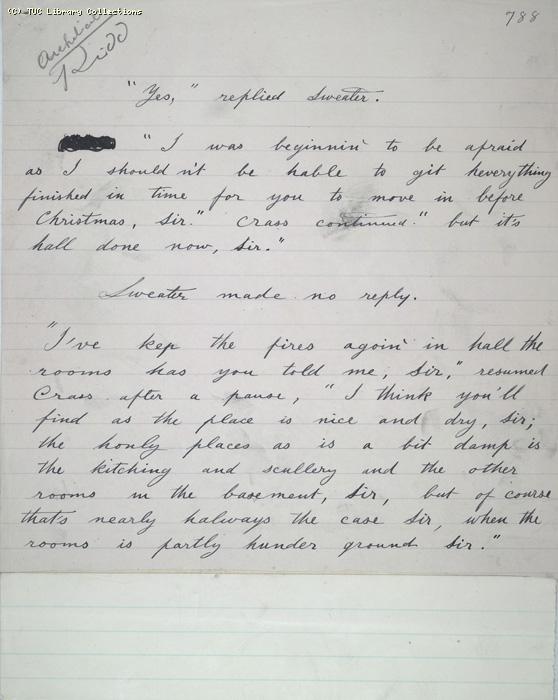 (C) TUC Library Collections
788
Kidd
"Yes," replied Sweater.
"I was beginnin' to be afraid
as I should n't be hable to git heverything
finished in time for you to move in before
Christmas, Sir." Crass continued." but it's
hall done now, Sir."
Sweater made no reply.
"I've kep the fires agoin' in hall the
rooms has you told me, Sir," resumed
Crass after a pause, "I think you'll
find as the place is nice and dry, Sir;
the honly places as is a bit damp is
the kitching and scullery and the other
rooms in the basement, Sir, but of course
that's nearly halways the case Sir, when the
rooms is partly hunder ground Sir."